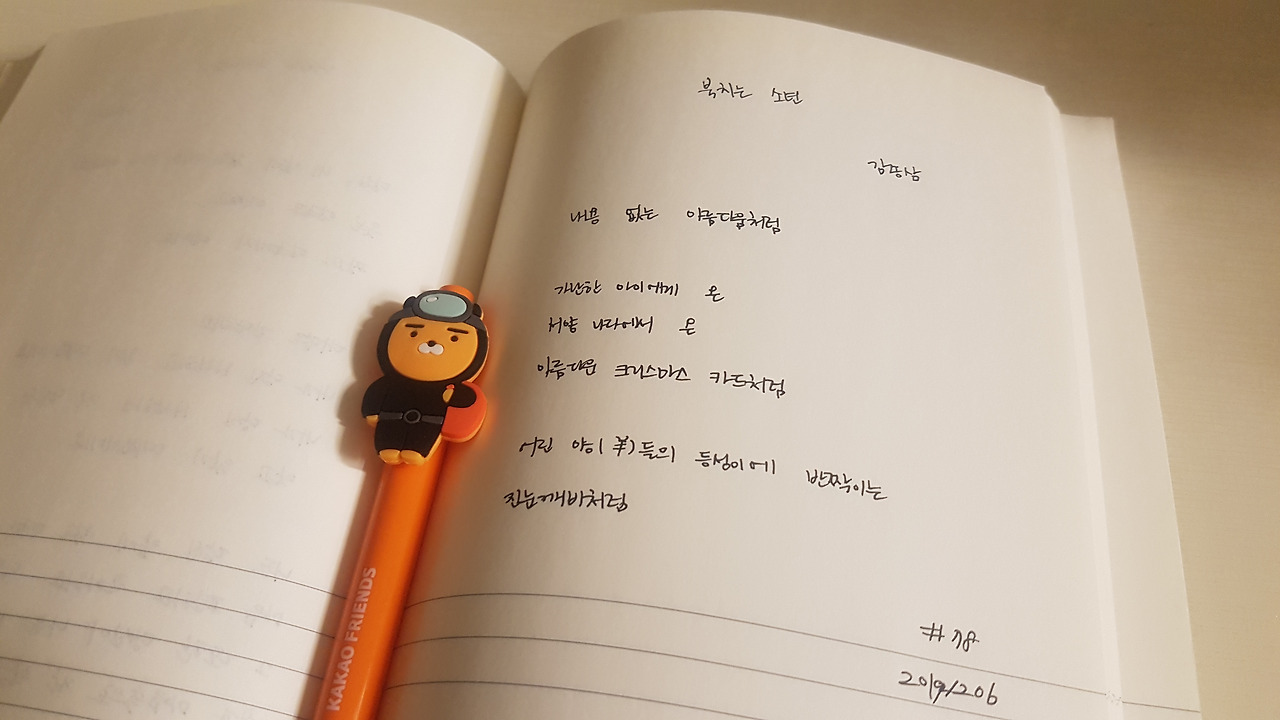 북치는 소년
김종삼
내용 없는 아름다움처럼
가난한 아이에게 온
서양 나라에서 온
아름다운 크리스마스 카드처럼
어린 양(羊)들의 등성이에 반짝이는
진눈깨비처럼
#78
20191206
KAKAO FRIENDS